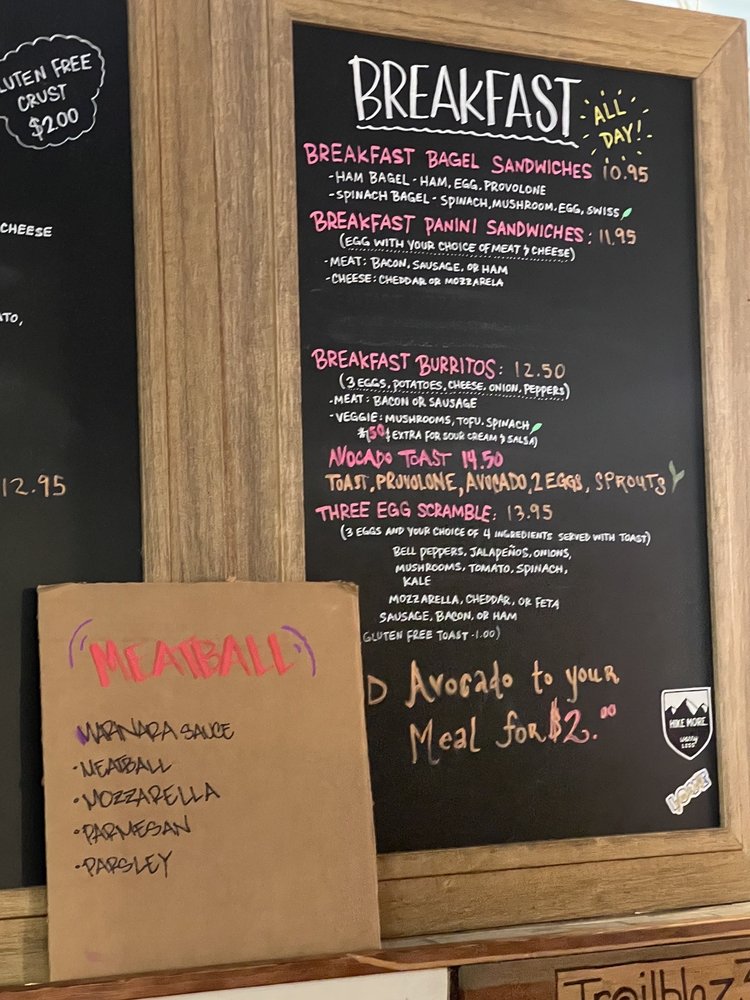 GLUTEN FREE
CRUST
$2.00
CHEESE
12.95
BREAKFAST
ALL
DAY!
BREAKFAST BAGEL SANDWICHES 10.95
-HAM BAGEL - HAM, EGG, PROVOLONE
-SPINACH BAGEL - SPINACH, MUSHROOM, EGG, SWISS
BREAKFAST PANINI SANDWICHES: 11.95
(EGG WITH YOUR CHOICE OF MEAT & CHEESE)
-MEAT: BACON, SAUSAGE, OR HAM
-CHEESE: CHEDDAR OR MOZZARELA
BREAKFAST BURRITOS: 12.50
(3 EGGS, POTATOES, CHEESE, ONION, PEPPERS)
-MEAT: BACON OR SAUSAGE
-VEGGIE: MUSHROOMS, TOFU, SPINACH
EXTRA FOR SOUR CREAM & SALSA)
AVOCADO TOAST 14.50
TOAST, PROVOLONE, AVOCADO, 2 EGGS, SPROUTS
THREE EGG SCRAMBLE: 13.95
(3 EGGS AND YOUR CHOICE OF 4 INGREDIENTS SERVED WITH TOAST)
BELL PEPPERS, JALAPEÑOS, ONIONS,
MUSHROOMS, TOMATO, SPINACH,
KALE
MOZZARELLA, CHEDDAR, OR FETA
SAUSAGE, BACON, OR HAM
GLUTEN FREE TOAST -1.00)
D Avocado to your
Meal for $2.00
HIKE MORE
worry
LESS
(MEATBALL)
MARINARA SAUCE
·MEATBALL
·MOZZARELLA
·PARMESAN
·PARSLEY
Trailblaz